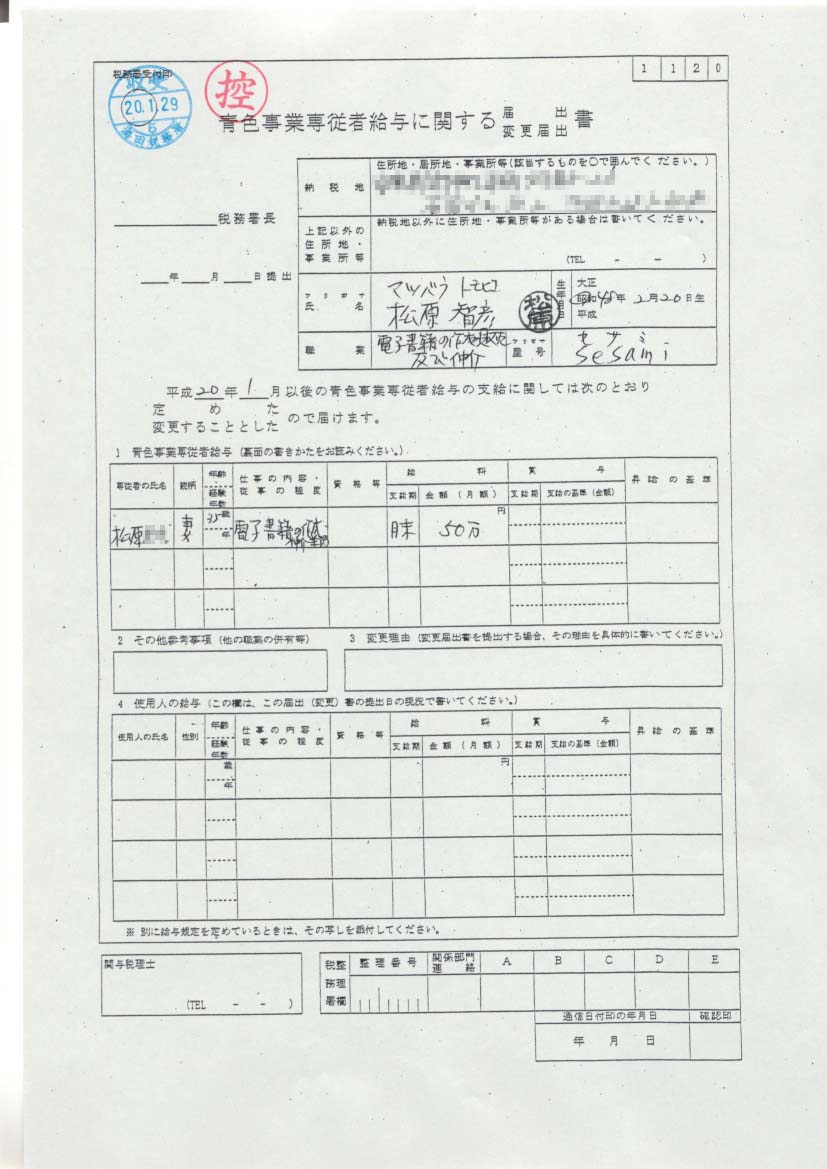 税務署受付印
収受
20.1.29
1 1 2 0
控
青色事業専従者給与に関する 届出 変更届出 書
住所地・居所地・事業所等(該当するものを○で囲んでください。)
納税地
税務署長
納税地以外に住所地・事業所等がある場合は書いてください。
上記以外の住所地・事業所等
(TEL - - )
年 月 日提出
フリガナ マツバラ トモヒコ
氏名 松原 智彦
生年月日 大正 昭和 平成 48年 2月20日生
職業 電子書籍の 及び仲介
フリガナ セサミ
屋号 sesami
平成20年1月以後の青色事業専従者給与の支給に関しては次のとおり
定めた
変更することとした
ので届けます。
1 青色事業専従者給与(裏面の書きかたをお読みください。)
専従者の氏名 続柄 年齢 経験年数 仕事の内容・従事の程度 資格等 給料 賞与 昇給の基準
支給期 金額(月額) 支給期 支給の基準(金額)
松原 妻 35歳 年 電子書籍の 月末 50万 円
2 その他参考事項(他の職業の併有等)
3 変更理由(変更届出書を提出する場合、その理由を具体的に書いてください。)
4 使用人の給与(この欄は、この届出(変更)書の提出日の現況で書いてください。)
使用人の氏名 性別 年齢 経験年数 仕事の内容・従事の程度 資格等 給料 賞与 昇給の基準
支給期 金額(月額) 支給期 支給の基準(金額)
歳 年 円
※ 別に給与規定を定めているときは、その写しを添付してください。
関与税理士
(TEL - - )
税務署整理欄 整理番号 関係部門連絡 A B C D E
通信日付印の年月日 確認印
年 月 日